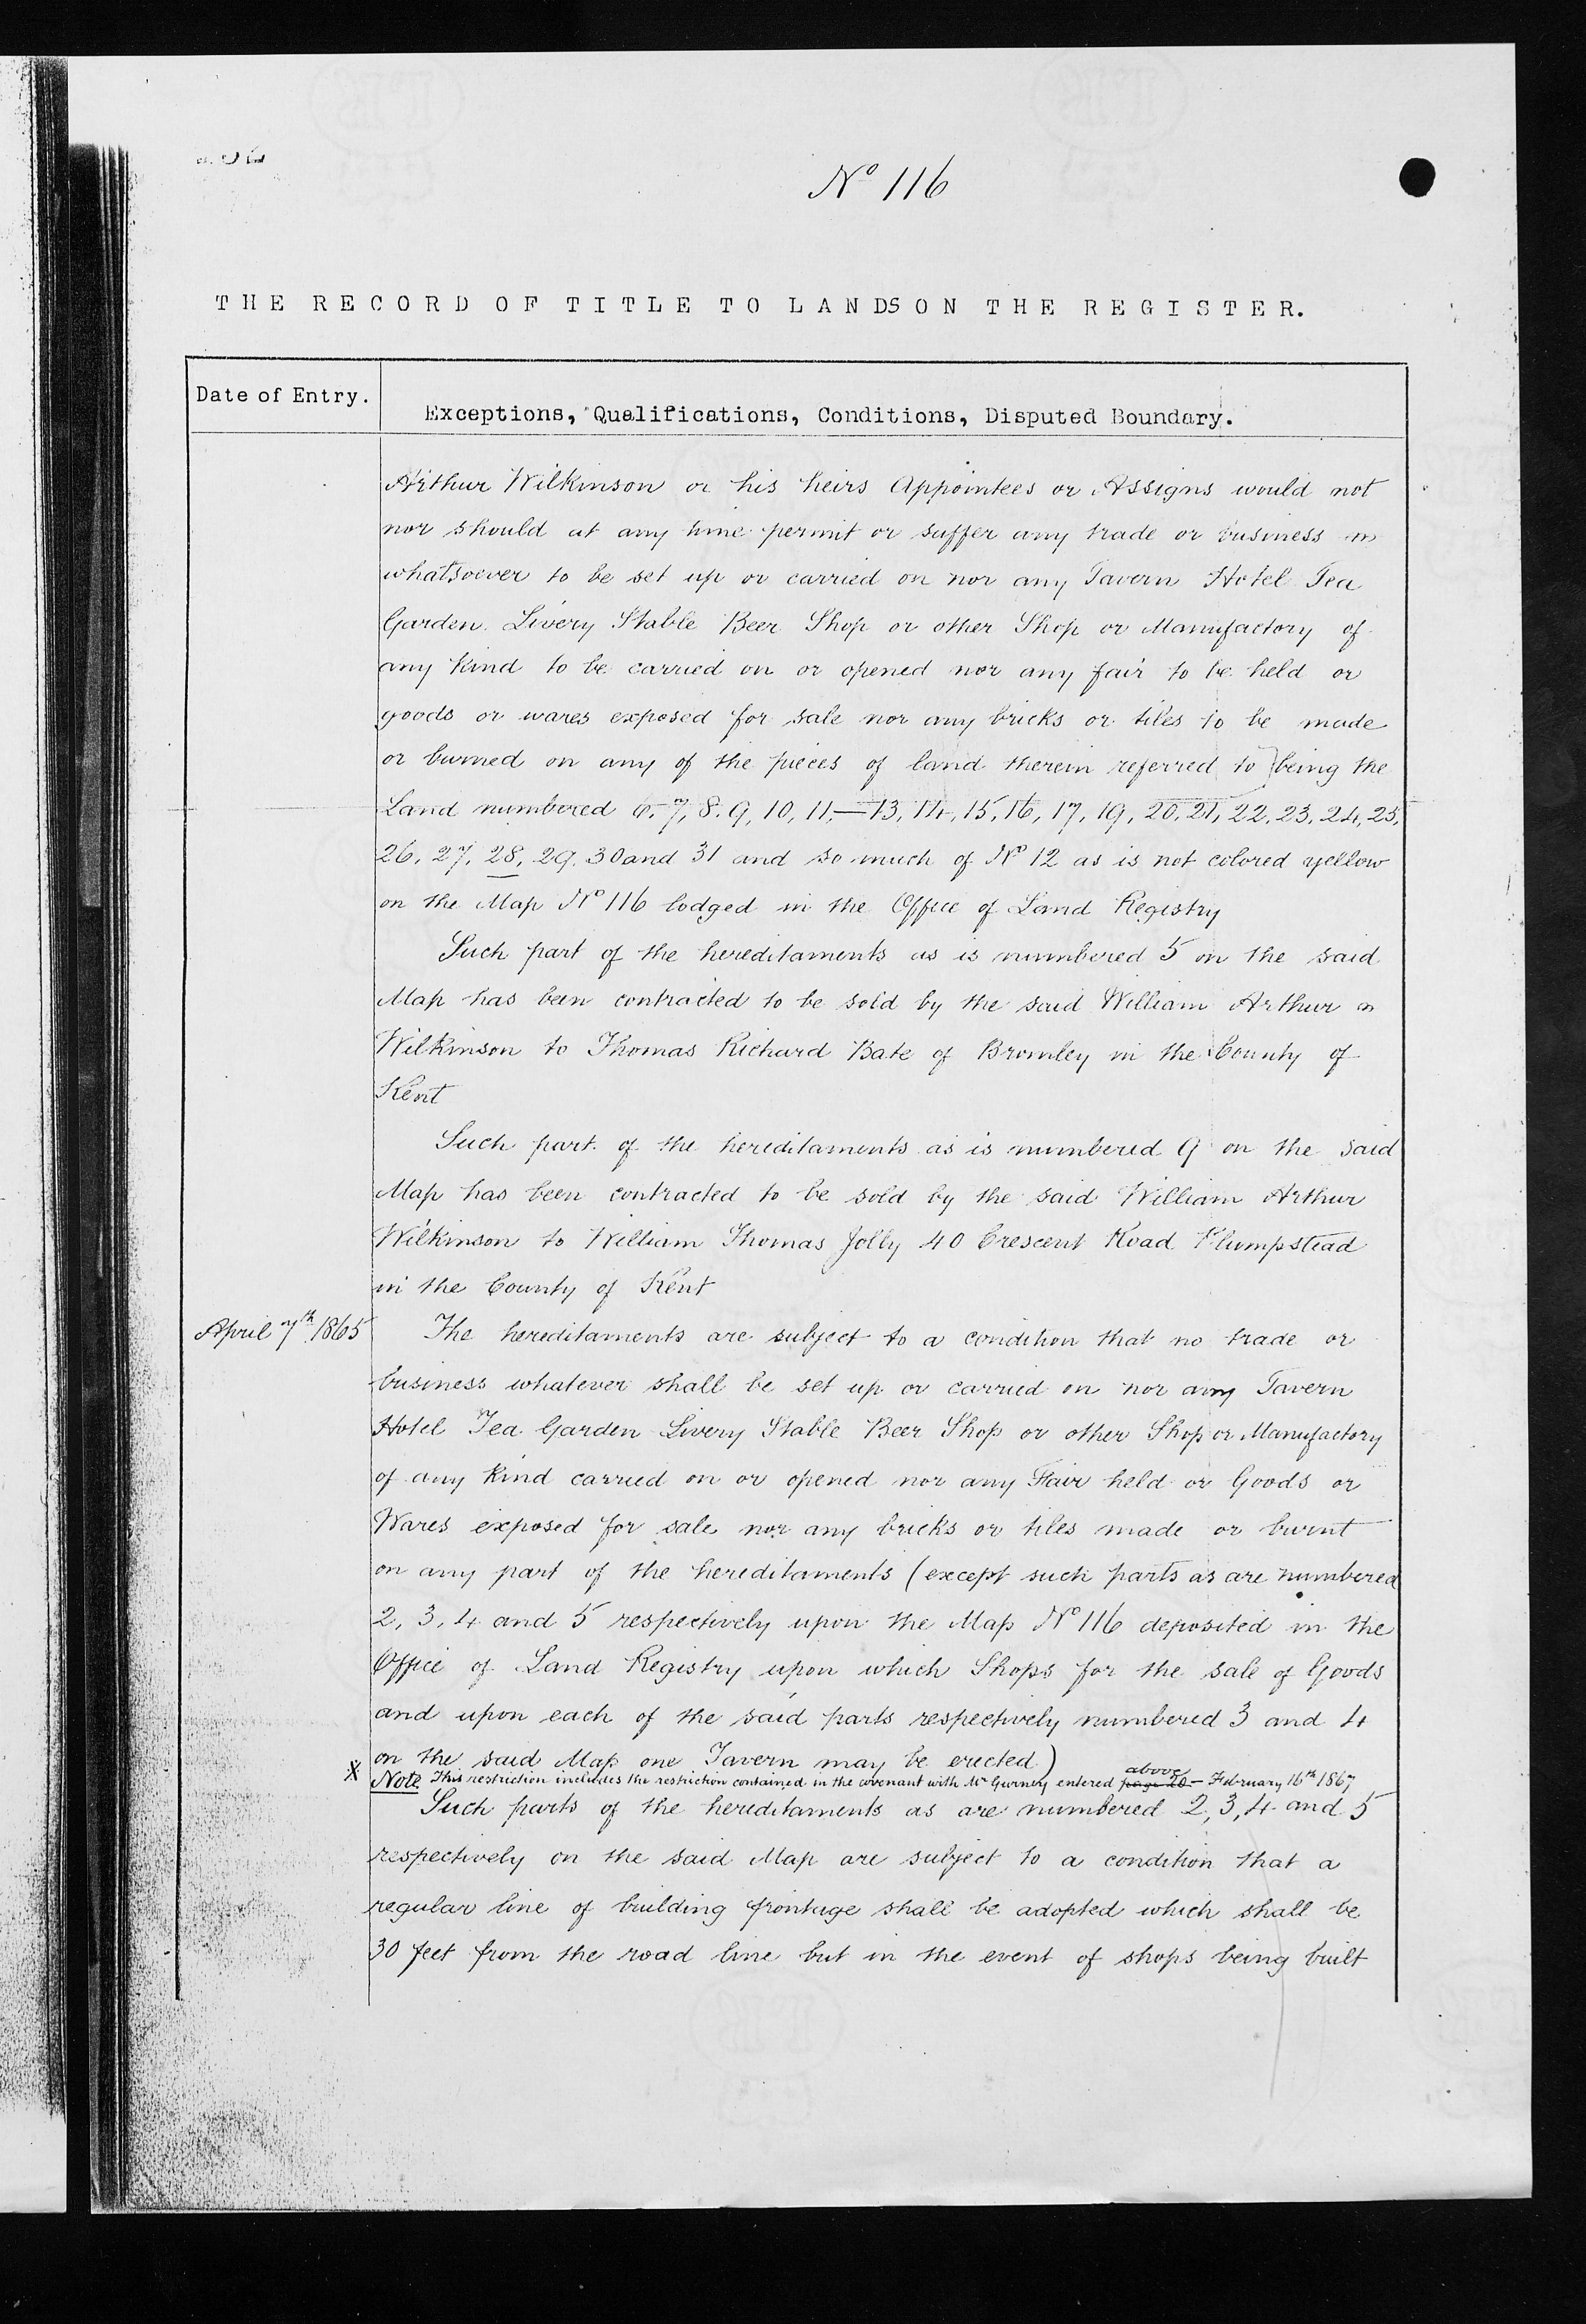 Nº 116
THE RECORD OF TITLE TO LANDS ON THE REGISTER.
Date of Entry.
Exceptions, Qualifications, Conditions, Disputed Boundary.
Arthur Wilkinson or his heirs Appointees or Assigns would not
nor should at any time permit or suffer any trade or business
whatsoever to be set up or carried on nor any Tavern Hotel Tea
Garden Livery Stable Beer Shop or other Shop or Manufactory of
any kind to be carried on or opened nor any fair to be held or
goods or wares exposed for sale nor any bricks or tiles to be made
or burned on any of the pieces of land therein referred to being the
Land numbered 6, 7, 8, 9, 10, 11,—13, 14, 15, 16, 17, 19, 20, 21, 22, 23, 24, 25,
26, 27, 28, 29, 30 and 31 and so much of Nº 12 as is not colored yellow
on the Map Nº 116 lodged in the Office of Land Registry
Such part of the hereditaments as is numbered 5 on the said
Map has been contracted to be sold by the said William Arthur
Wilkinson to Thomas Richard Bate of Bromley in the County of
Kent
Such part of the hereditaments as is numbered 9 on the said
Map has been contracted to be sold by the said William Arthur
Wilkinson to William Thomas Jolly 40 Crescent Road Plumpstead
in the County of Kent
April 7th 1865 The hereditaments are subject to a condition that no trade or
business whatever shall be set up or carried on nor any Tavern
Hotel Tea Garden Livery Stable Beer Shop or other Shop or Manufactory
of any kind carried on or opened nor any Fair held or Goods or
Wares exposed for sale nor any bricks or tiles made or burnt
on any part of the hereditaments (except such parts as are numbered
2, 3, 4 and 5 respectively upon the Map Nº 116 deposited in the
Office of Land Registry upon which Shops for the sale of Goods
and upon each of the said parts respectively numbered 3 and 4
on the said Map one Tavern may be erected)
X Note This restriction includes the restriction contained in the covenant with Mr Gurney entered page 20 above – February 16th 1867
Such parts of the hereditaments as are numbered 2, 3, 4 and 5
respectively on the said Map are subject to a condition that a
regular line of building frontage shall be adopted which shall be
30 feet from the road line but in the event of shops being built